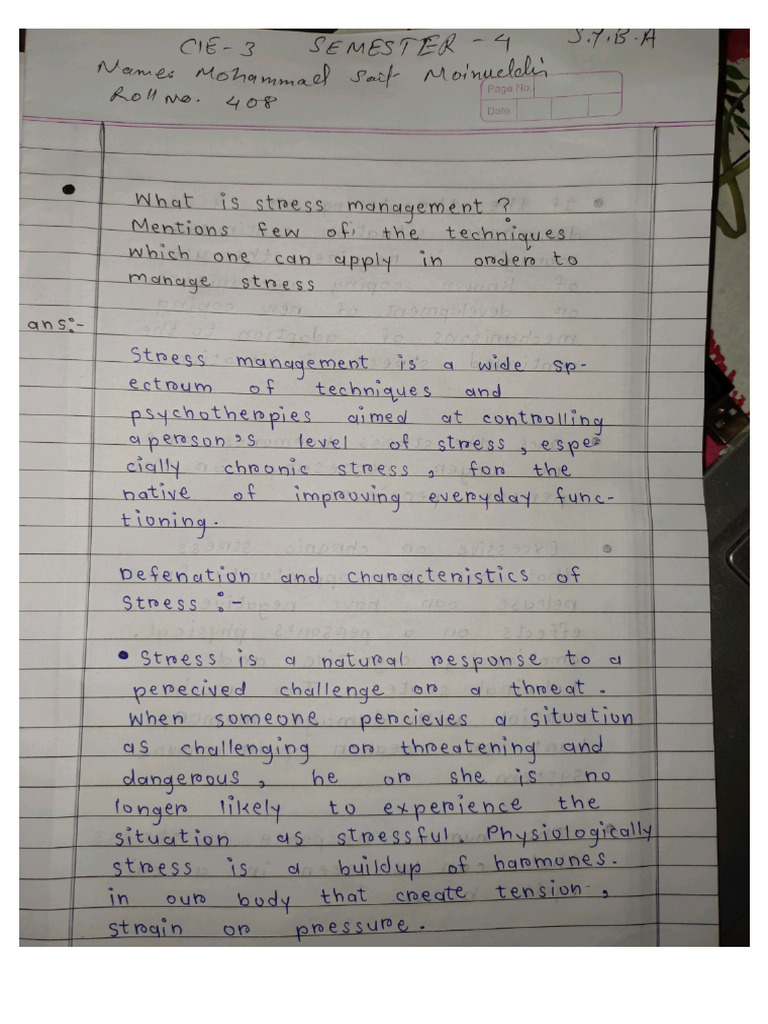 CIE-3 SEMESTER-4 S.Y.B.A
Names Mohammad Saif Moinuddin
Roll no. 408
Page No.
Date
What is stress management?
Mentions few of, the techniques
which one can apply in order to
manage stress
ans:-
Stress management is a wide sp-
ectrum of techniques and
psychotherpies aimed at controlling
a person's level of stress, espe
cially chronic stress, for the
native of improving everyday func-
tioning.
Defenation and characteristics of
Stress :-
• Stress is a natural response to a
perecived challenge or a threat.
When someone percieves a situation
as challenging or threatening and
dangerous, he or she is no
longer likely to experience the
situation as stressful. Physiologically
stress is a buildup of harmones.
in our body that create tension,
strain or pressure.